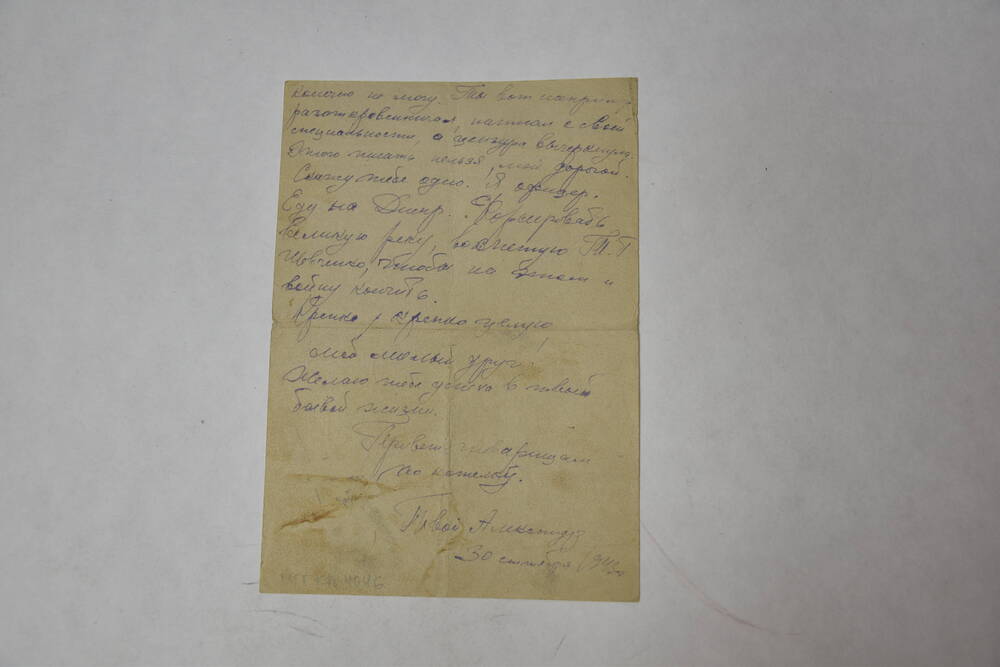 конечно не могу. Ты вот наприм.
разоткровенничал, написал о своей
специальности, а цензура вычеркнула.
Этого писать нельзя, мой дорогой.
Скажу тебе одно. Я офицер.
Еду на Днепр. Форсировать
Великую реку, воспетую Т. Г.
Шевченко, чтобы на этом и
войну кончить.
Крепко, крепко целую
мой милый друг!
Желаю тебе успеха в новой
боевой жизни.
Привет товарищам
по
Твой Александр
30 сентября
4046